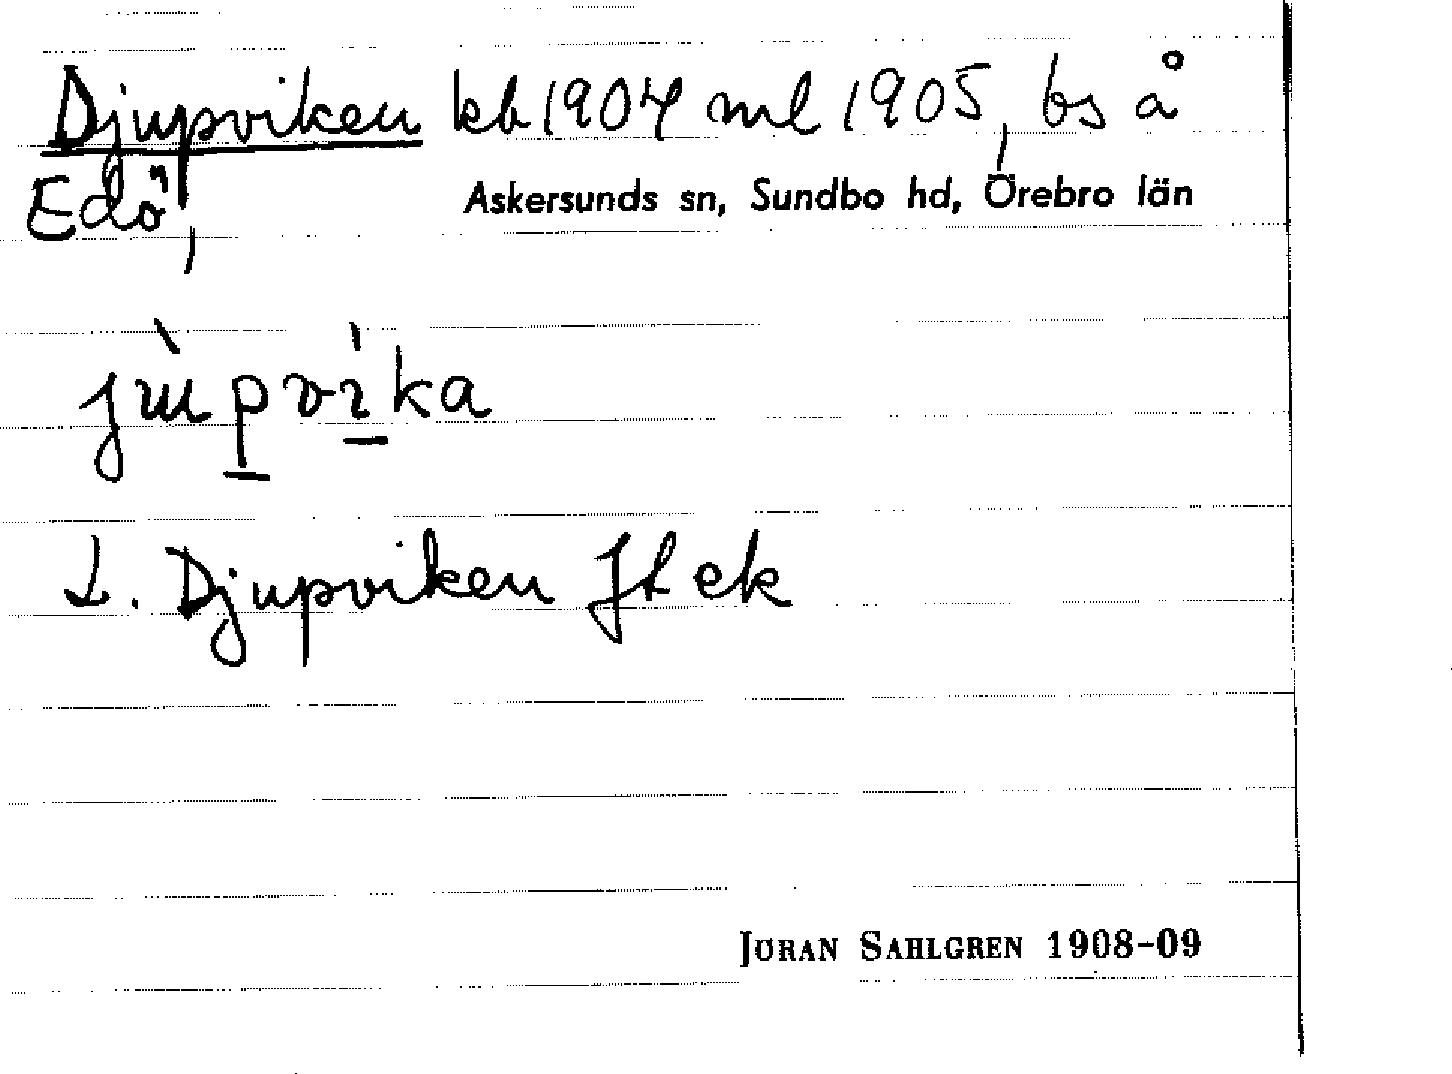 Djupviken kb 1904 ml 1905, bs å
Edö,
Askersunds sn, Sundbo hd, Örebro län
jùpvìka
L. Djupviken Jl ek
JÖRAN SAHLGREN 1908-09